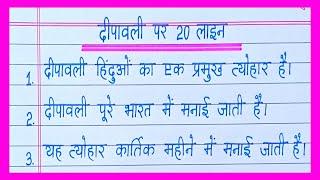 दीपावली पर 20 लाइन
1. दीपावली हिंदुओं का एक प्रमुख त्योहार है।
2. दीपावली पूरे भारत में मनाई जाती है।
3. यह त्योहार कार्तिक महीने में मनाई जाती है।